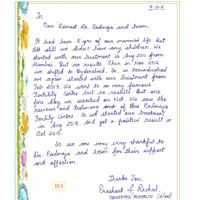 To,
Our Dearest Dr. Padmaja and team.
It had been 5 yrs of our married life. But
till still we didn't have any children. We
started with our treatment in Aug 2011 from
Mumbai. But no results. Then in Nov 2012
we shifted to Hyderabad. So,
we again started with our treatment from
Feb 2013. We went to so very famous
Fertility Centre but no results. But one
fine day we searched on Net. We saw the
reviews and testimony and of this Padmaja
Fertility Centre. So we started our treatment
in Aug 2015. And got a positive result in
Oct 2015.
So we are very very thankful to
Dr. Padmaja and team for their support
and affection
Thanks You,
Prashant &